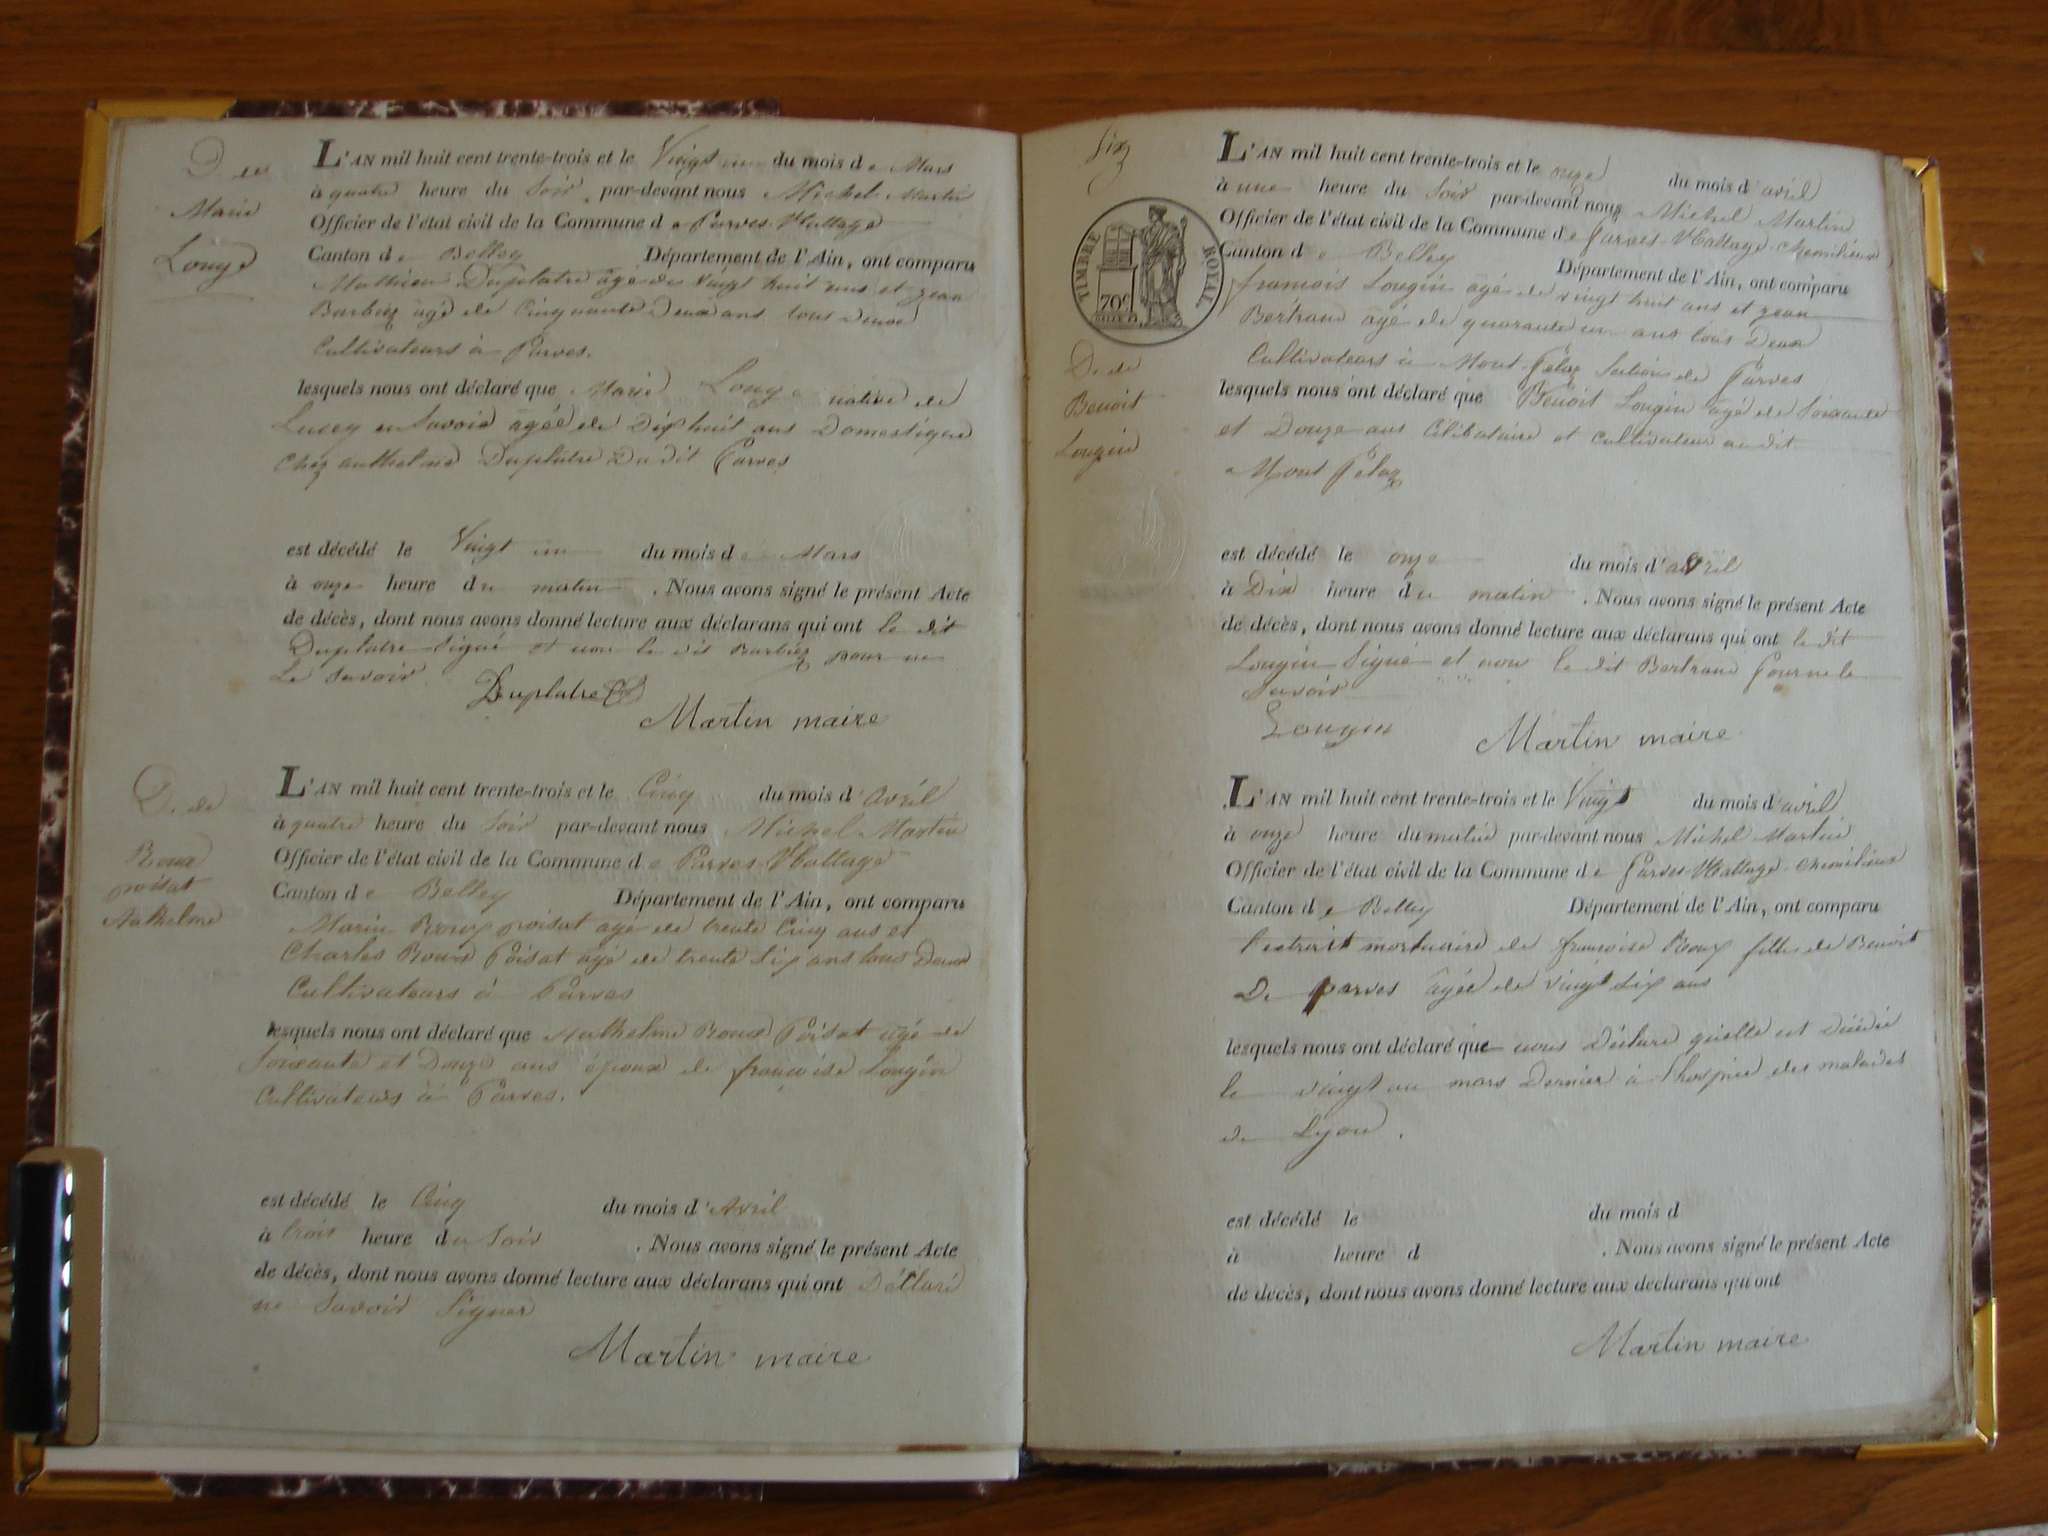 D. de
Marie
Louge
L'AN mil huit cent trente-trois et le Vingt un du mois de Mars
à quatre heure du Soir par-devant nous Michel Martin
Officier de l'état civil de la Commune de Parves-Nattage
Canton de Belley Département de l'Ain, ont comparu
Mathieu Duplatre âgé de Vingt huit ans et jean
Barbiez âgé de Cinquante Deux ans tous deux
Cultivateurs à Parves.
lesquels nous ont déclaré que Marie Louge native de
Lucey en Savoie âgée de Dix huit ans Domestique
Chez anthelme Duplatre Du dit Parves
est décédé le Vingt un du mois de Mars
à onze heure du matin . Nous avons signé le présent Acte
de décès, dont nous avons donné lecture aux déclarans qui ont le dit
Duplatre Signé et non le dit Barbiez pour ne
Le Savoir
Duplatre
Martin maire
D. de
Roux
poisat
Anthelme
L'AN mil huit cent trente-trois et le Cinq du mois d'Avril
à quatre heure du Soir par-devant nous Michel Martin
Officier de l'état civil de la Commune de Parves-Nattage
Canton de Belley Département de l'Ain, ont comparu
Marin Roux poisat age de trente Cinq ans et
Charles Roux Poisat âgé de trente Six ans tous Deux
Cultivateurs à Parves
lesquels nous ont déclaré que Anthelme Roux Poisat âgé de
Soixante et Douze ans époux de francoise Lougin
Cultivateurs à Parves.
est décédé le Cinq du mois d'Avril
à trois heure du Soir . Nous avons signé le présent Acte
de décès, dont nous avons donné lecture aux déclarans qui ont Déclaré
ne Savoir Signer
Martin maire
Six
TIMBRE ROYAL
70c
D. de
Benoit
Lougin
L'AN mil huit cent trente-trois et le onze du mois d'avril
à une heure du Soir par-devant nous Michel Martin
Officier de l'état civil de la Commune de Parves-Nattage-Chemilieux
Canton de Belley Département de l'Ain, ont comparu
francois Lougin âgé de vingt huit ans et jean
Bertrand âgé de quarante un ans tous Deux
Cultivateurs à Mont Pelaz Section de Parves
lesquels nous ont déclaré que Benoit Lougin âgé de Soixante
et Douze ans Célibataire et Cultivateur au dit
Mont Pelaz
est décédé le onze du mois d'avril
à Dix heure du matin . Nous avons signé le présent Acte
de décès, dont nous avons donné lecture aux déclarans qui ont le dit
Lougin Signé et non le dit Bertrand Pour ne le
Savoir
Lougin
Martin maire
L'AN mil huit cent trente-trois et le Vingt du mois d'avril
à onze heure du matin par-devant nous Michel Martin
Officier de l'état civil de la Commune de Parves-Nattage-Chemilieux
Canton de Belley Département de l'Ain, ont comparu
l'extrait mortuaire de francoise Roux fille de Benoit
De parves âgée de vingt Six ans
lesquels nous ont déclaré que nous Déclare quelle est Décédée
le vingt un mars Dernier à l'hospice des malades
de Lyon.
est décédé le du mois d
à heure d . Nous avons signé le présent Acte
de décès, dont nous avons donné lecture aux déclarans qui ont
Martin maire